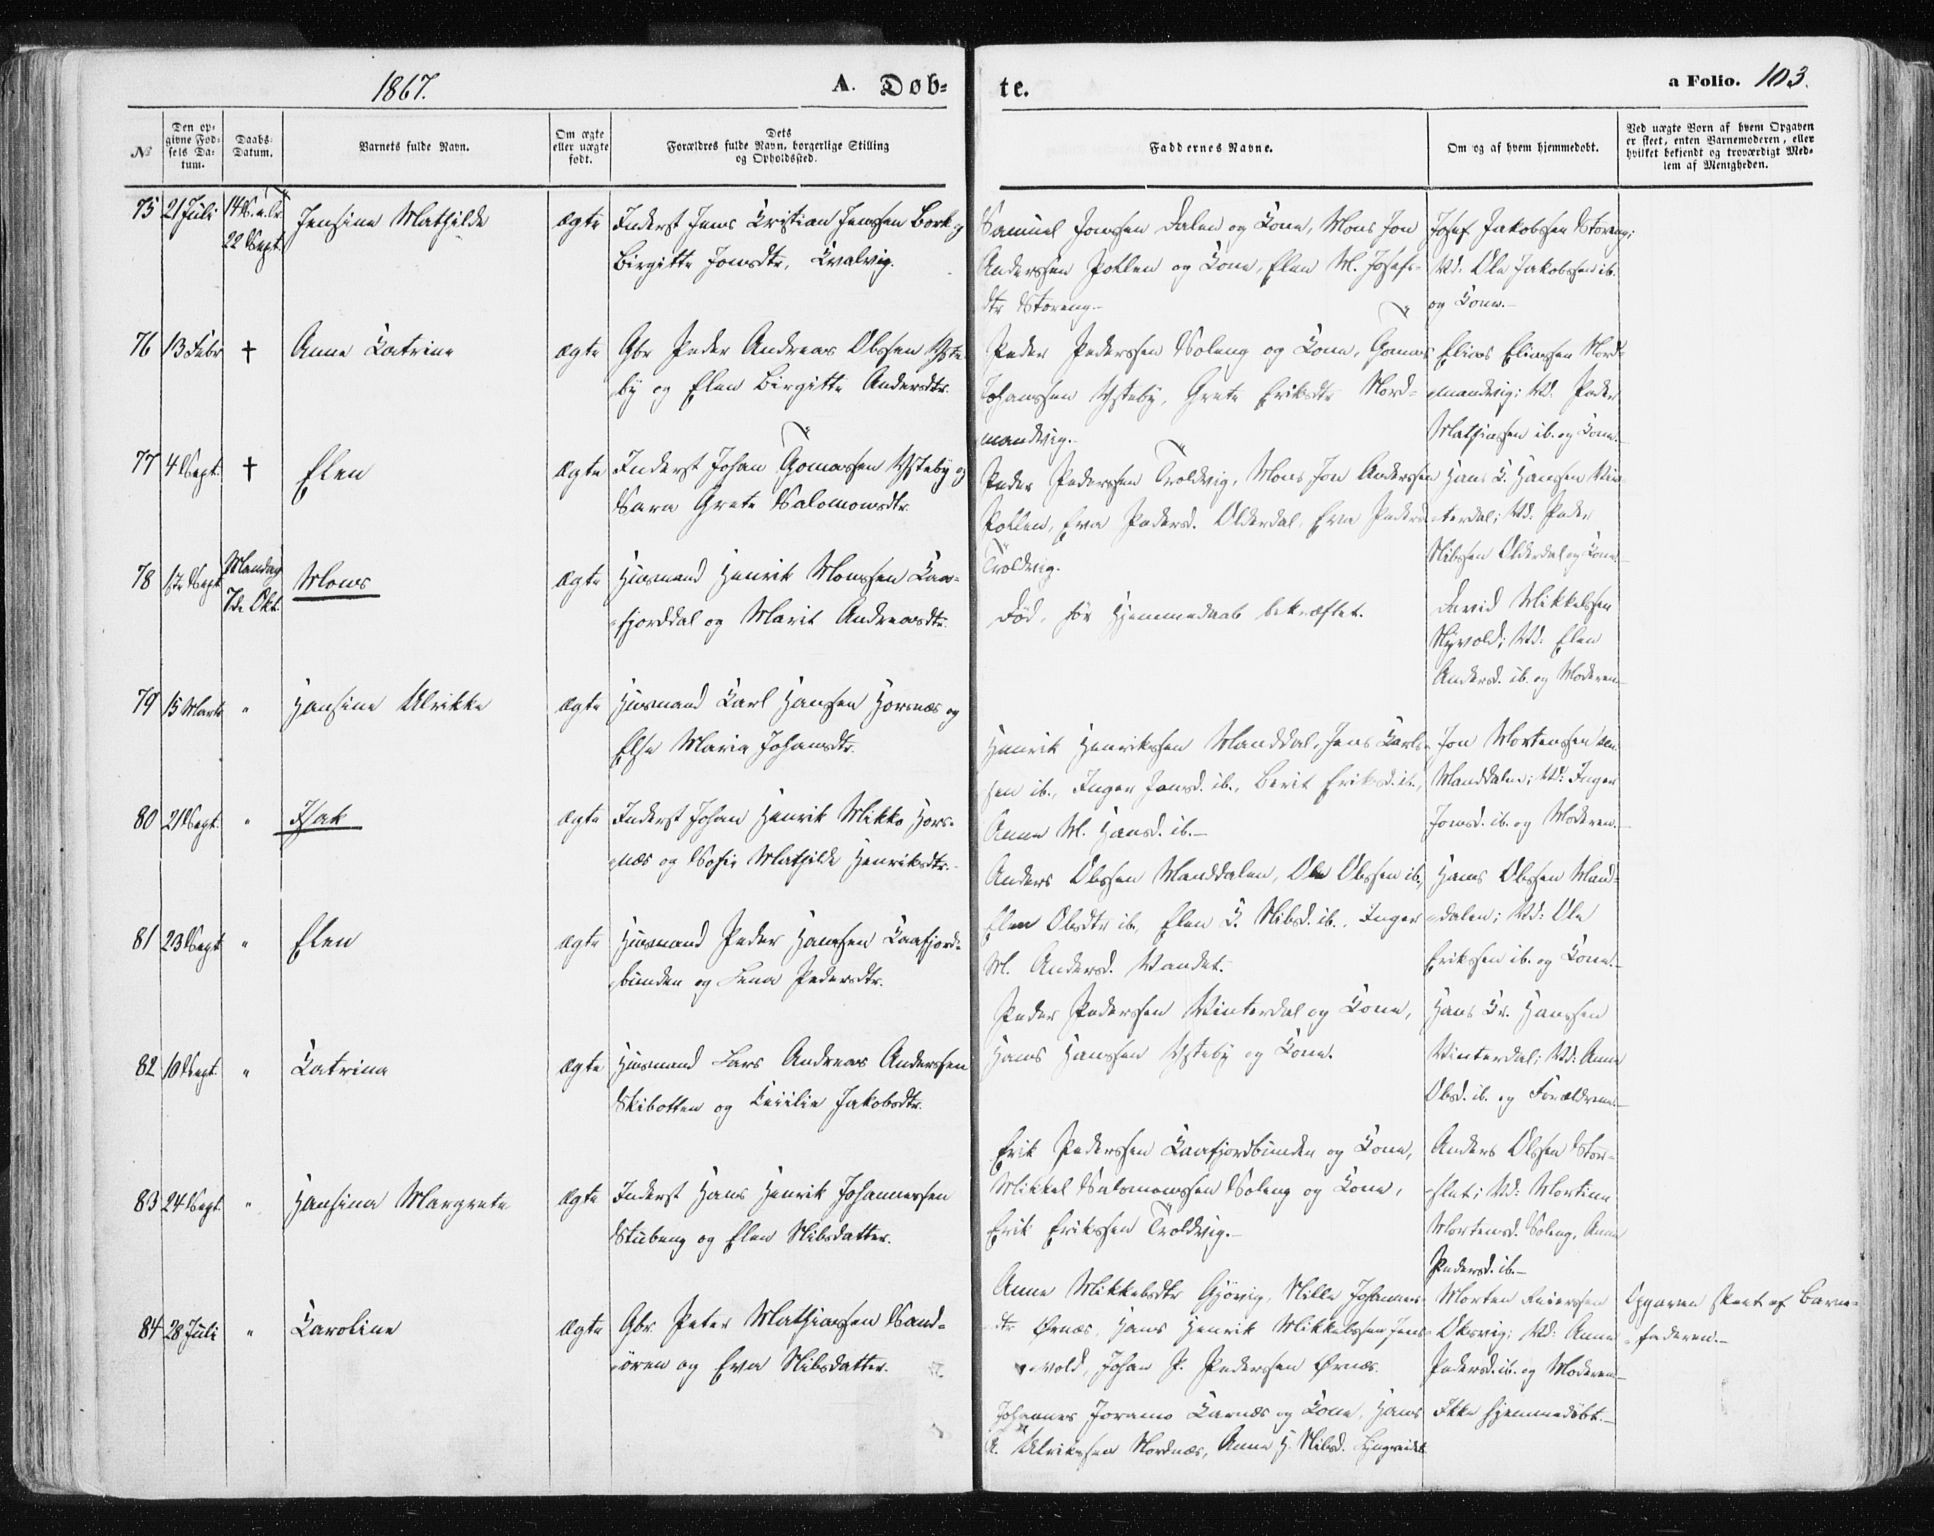 1867.
A. Døb-
te.
a Folio. 103.
№
Den op-
givne Fød-
sels Da-
tum.
Daabs-
Datum.
Barnets fulde Navn.
Om ægte
eller uægte
født.
Dets
Forældres fulde Navn, borgerlige Stilling
og Opholdssted.
Faddernes Navne.
Om og af hvem hjemmedøbt.
Ved uægte Børn af hvem Opgaven
er skeet, enten Barnemoderen, eller
hvilket bekjendt og troværdigt Med-
lem af Menigheden.
75 21 Juli
22 Sept.
Jensine Mathilde
ægte
Inderst Jens Kristian Jenssen Bork og
Birgitte Jonsdtr, Kvalvig.
Samuel Jonssen Dalen og Kone, Mons Jon
Anderssen Pollen og Kone, Elen M. Josefs-
dtr Storeng.-
Josef Jakobssen Storeng;
Vd: Ole Jakobssen ib.
og Kone.-
76 13 Febr
†
Anne Katrine
ægte
Gbr Peder Andreas Olssen Yste-
by og Elen Birgitte Andersdtr.
Peder Pederssen Soleng og Kone, Tomas
Johanssen Ysteby, Grete Eriksdtr Nord-
mandvig.-
Elias Eliassen Nord-
mandvig; Vd: Peder
Mathiassen ib. og Kone.-
77 4 Sept.
†
Elen
ægte
Inderst Johan Tomassen Ysteby og
Sara Grete Salomonsdtr.
Peder Pederssen Troldvig, Mons Jon Anderssen
Pollen, Eva Pedersd. Olderdal, Eva Pedersd
Troldvig.
Hans K. Hanssen Vin-
terdal; Vd: Peder
Nilssen Olderdal og Kone.-
78 1ste Sept
Mandag
7de Okt.
Mons
ægte
Husmand Henrik Monssen Kaa-
fjorddal og Marit Andreasdtr.
Død, før Hjemmedaab bekræftet.
David Mikkelssen
Nyvold; Vd: Elen
Andersd. ib. og Moderen.-
79 15 Marts
"
Hansine Ulrikke
ægte
Husmand Karl Hanssen Horsnæs og
Else Maria Johansdtr.
Henrik Henrikssen Manddal, Jens Karls-
sen ib., Inger Jonsd. ib., Berit Eriksd. ib.,
Anne M. Hansd. ib.-
Jon Mortenssen
Manddalen; Vd: Inger
Jonsd. ib. og Moderen.-
80 21 Sept.
"
Isak
ægte
Inderst Johan Henrik Mikko Hors-
næs og Sofie Mathilde Henriksdtr.-
Anders Olssen Manddalen, Ole Olssen ib.,
Elen Olsdtr ib, Elen K. Nilsd. ib., Inger
M. Andersd. Vandet.-
Hans Olssen Mand-
dalen; Vd: Ole
Erikssen ib. og Kone.-
81 23 Sept
"
Elen
ægte
Husmand Peder Hanssen Kaafjord-
bunden og Lena Pedersdtr.
Peder Pederssen Vinterdal og Kone,
Hans Hanssen Ysteby og Kone.
Hans Kr. Hanssen
Vinterdal; Vd: Anne
Olsd. ib. og Forældrene.-
82 10 Sept.
"
Katrina
ægte
Husmand Lars Andreas Anderssen
Skibotten og Cecilie Jakobsdtr.
Erik Pederssen Kaafjordbunden og Kone,
Mikkel Salomonssen Soleng og Kone,
Erik Erikssen Troldvig.-
Anders Olssen Stor-
slet; Vd: Martine
Mortensd. Soleng, Anne
Pedersd. ib.-
83 24 Sept.
"
Hansina Margrete
ægte
Inderst Hans Henrik Johannessen
Stubeng og Elen Nilsdatter.
Anne Mikkelsdtr Gjøvig, Nille Johannes-
dtr Ørnæs, Hans Henrik Mikkelssen Jens-
vold, Johan P. Pederssen Ørnæs.
Morten
Oksvig; Vd: Anne
Pedersd. ib. og Moderen.-
Opgaven skeet af Barne-
faderen.-
84 28 Juli
"
Karoline
ægte
Gbr Peter Mathiassen Sand-
øren og Eva Nilsdatter.
Johannes Joramo Karnæs og Kone, Hans
A. Ulrikssen Nordnæs, Anne H. Nilsd. Lyngseidet
Ikke hjemmedøbt.-